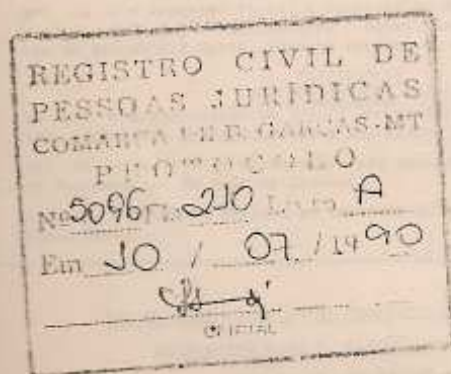 REGISTRO CIVIL DE
PESSOAS JURÍDICAS
COMARCA DE B. GARÇAS-MT
PROTOCOLO
Nº 5096 Fls 210 Livro A
Em 10 / 07 / 1990
OFICIAL